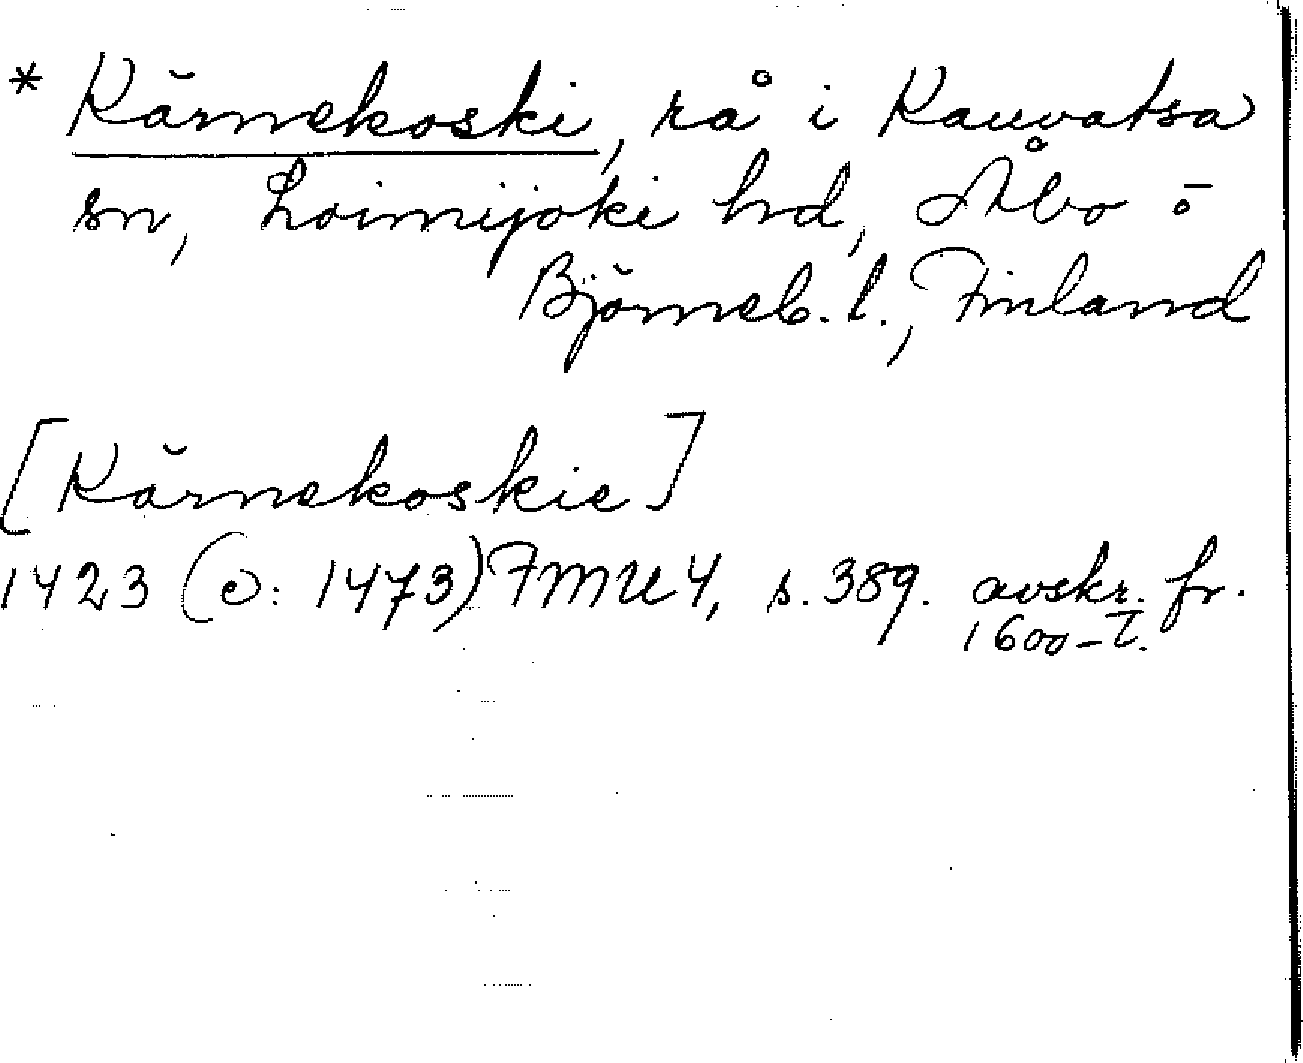 * Kärnekoski, rå i Kauvatsa
sn, Loimijoki hd, Åbo o-
Björneb. l., Finland
[Kärnekoskie]
1423 (ɔ: 1473) FMU 4, s. 389. avskr. fr.
1600-t.